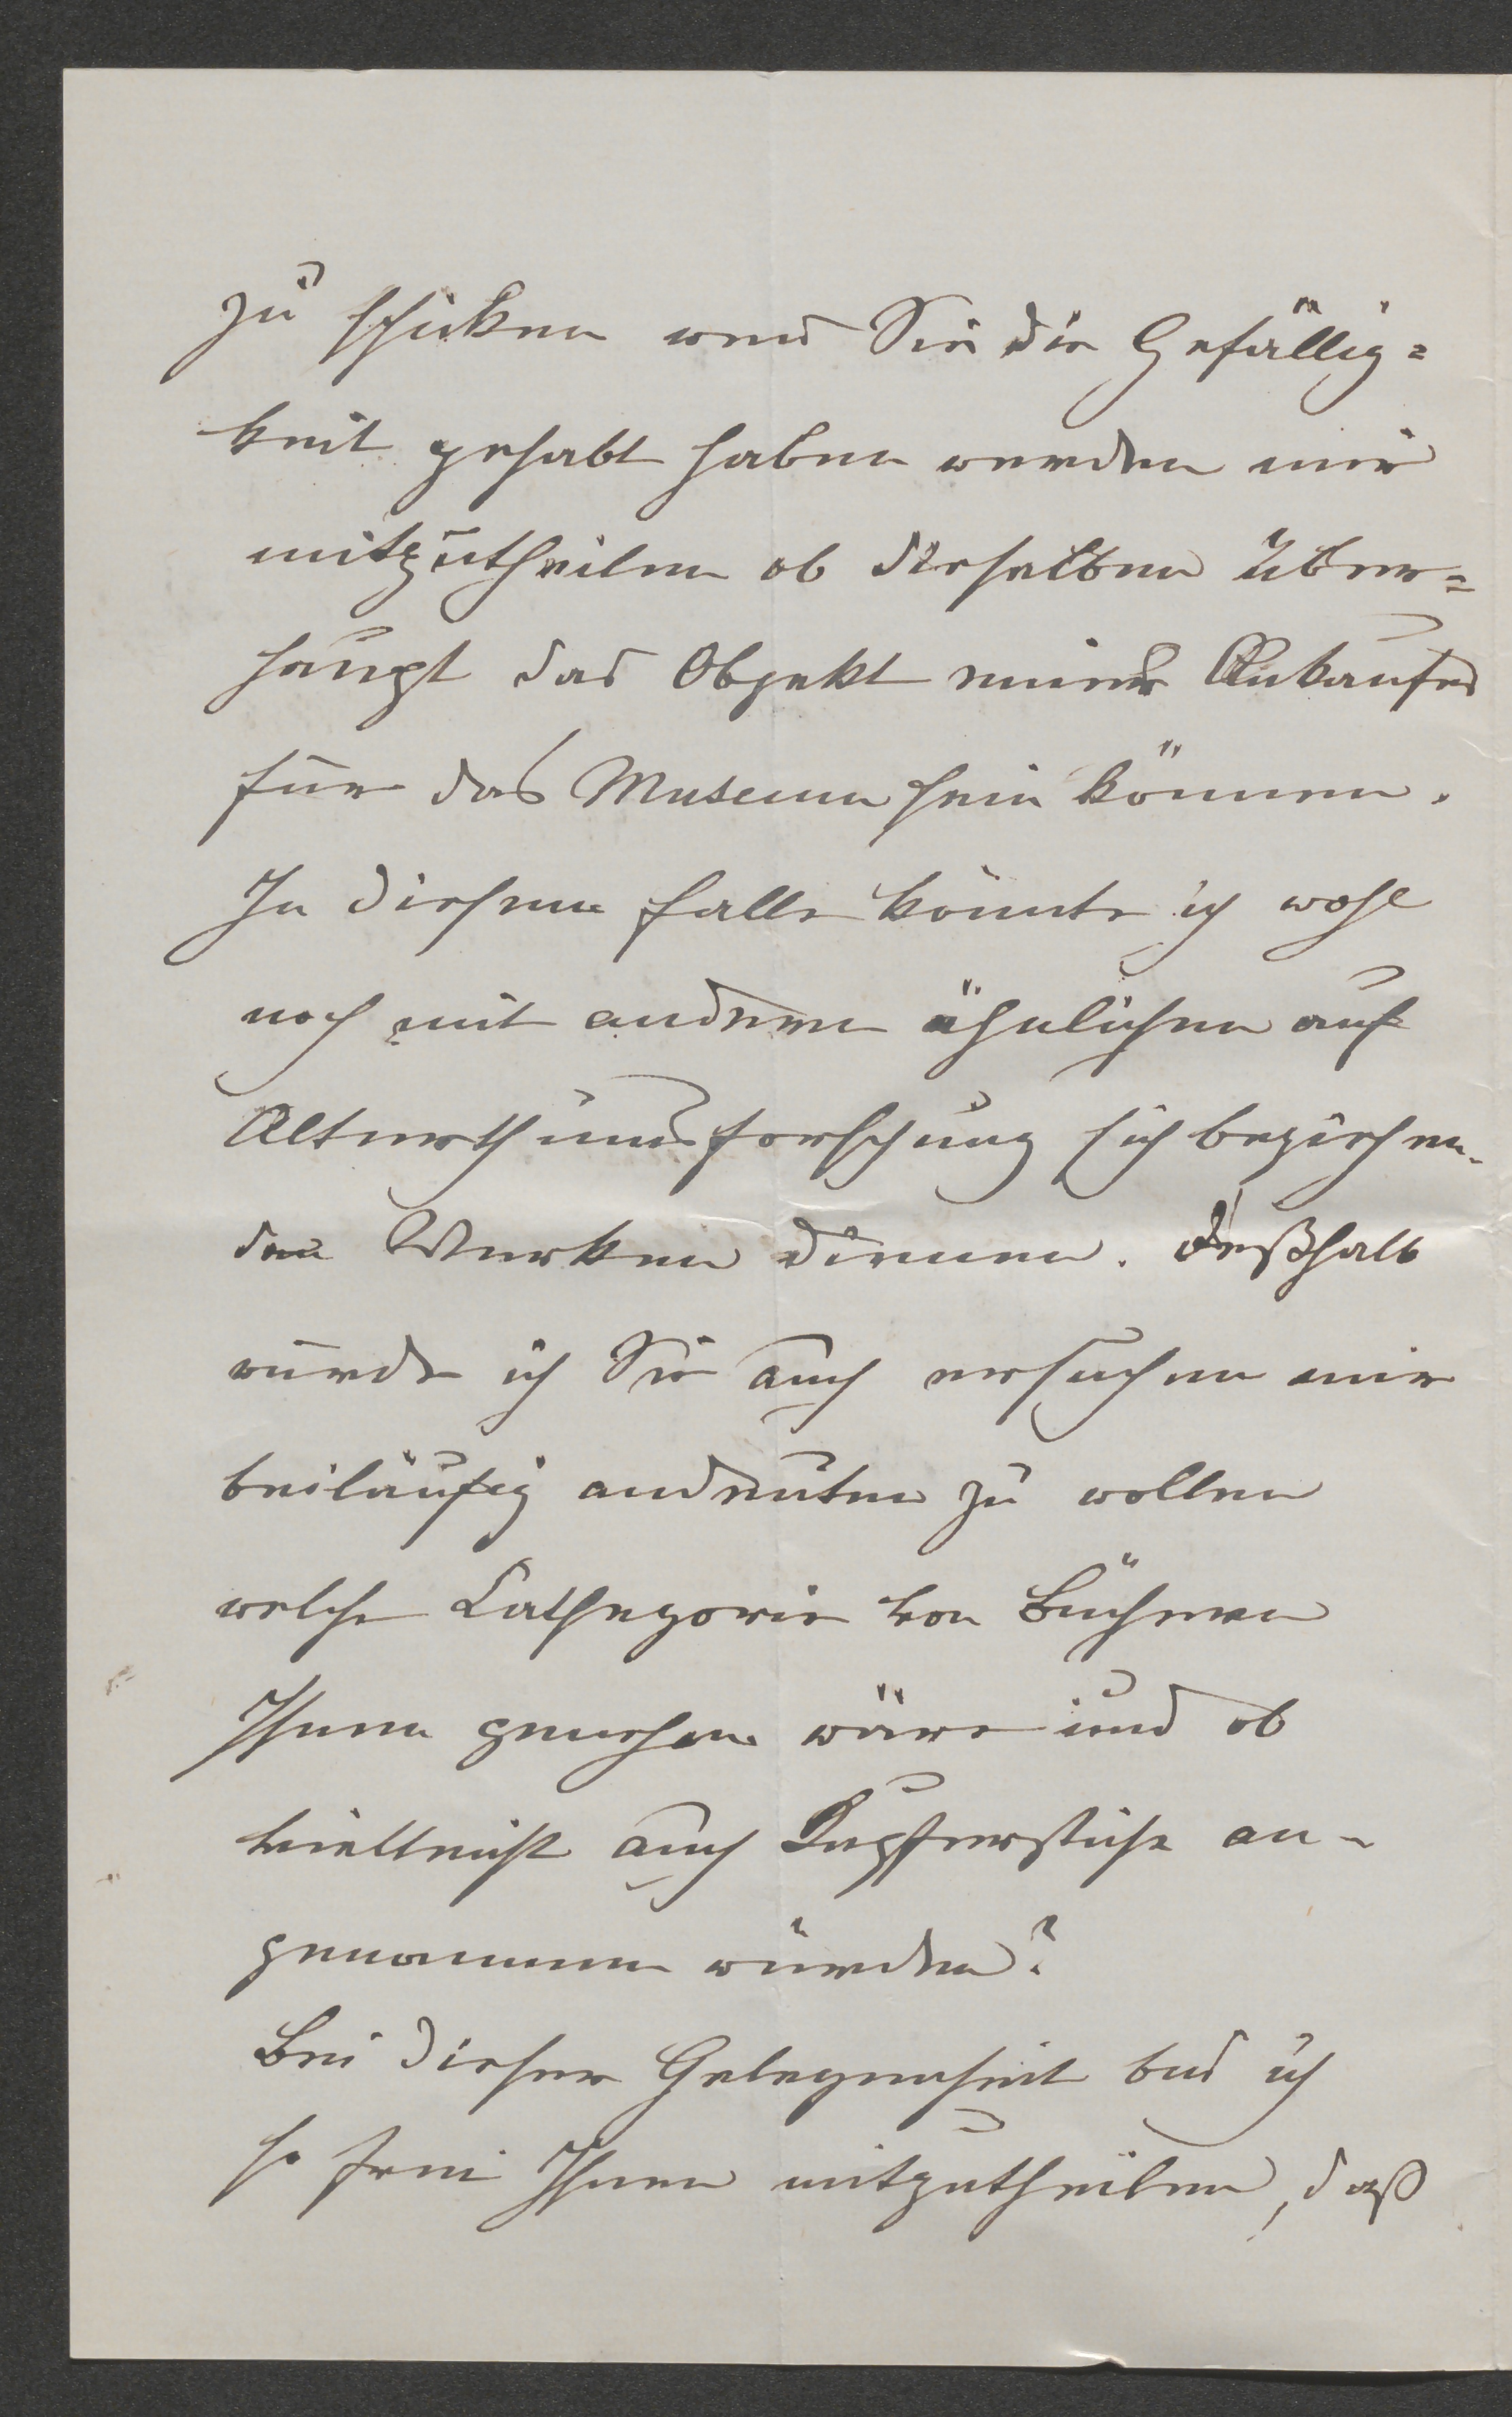 zu schicken wenn Sie die Gefällig=
keit gehabt haben werden mir
mitzutheilen ob dieselben über=
haupt das Objekt eines Ankaufes
für das Museum sein können.
In diesem Falle könnte ich wohl
noch mit anderen ähnlichen auf
Alterthumsforschung sich beziehen-
den Werken dienen. Deßhalb
würde ich Sie auch ersuchen mir
beiläufig andeuten zu wollen
welche Cathegorie von Büchern
Ihnen genehm wäre und ob
vielleicht auch Kupferstiche an-
genommen würden?
Bei dieser Gelegenheit bin ich
so frei Ihnen mitzutheilen, daß